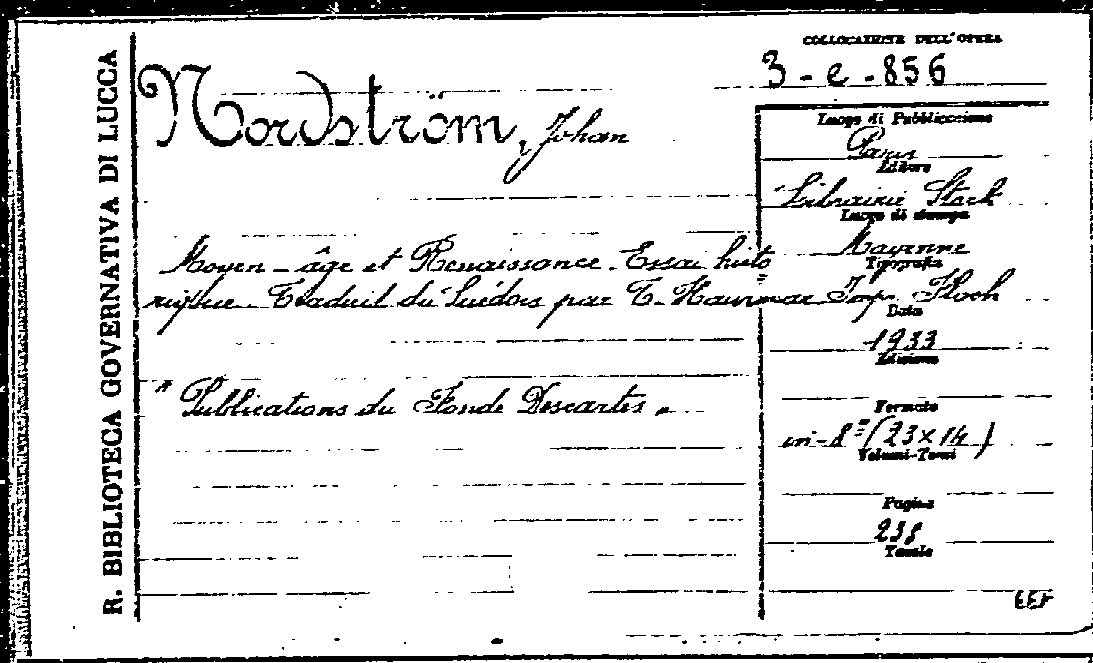 R. BIBLIOTECA GOVERNATIVA DI LUCCA
COLLOCAZIONE DELL'OPERA
3-e-856
Nordström, Johan
Luogo di Pubblicazione
Paris
Editore
Librairie Stock
Luogo di stampa
Mayenne
Tipografia
Imp. Floch
Data
1933
Edizione
Formato
in-8º (23x14)
Volumi-Tomi
Pagine
238
Tavole
Moyen-âge et Renaissance. Essai histo
rique. Traduit du Suédois par T. Hammar
"Publications du Fonds Descartes"